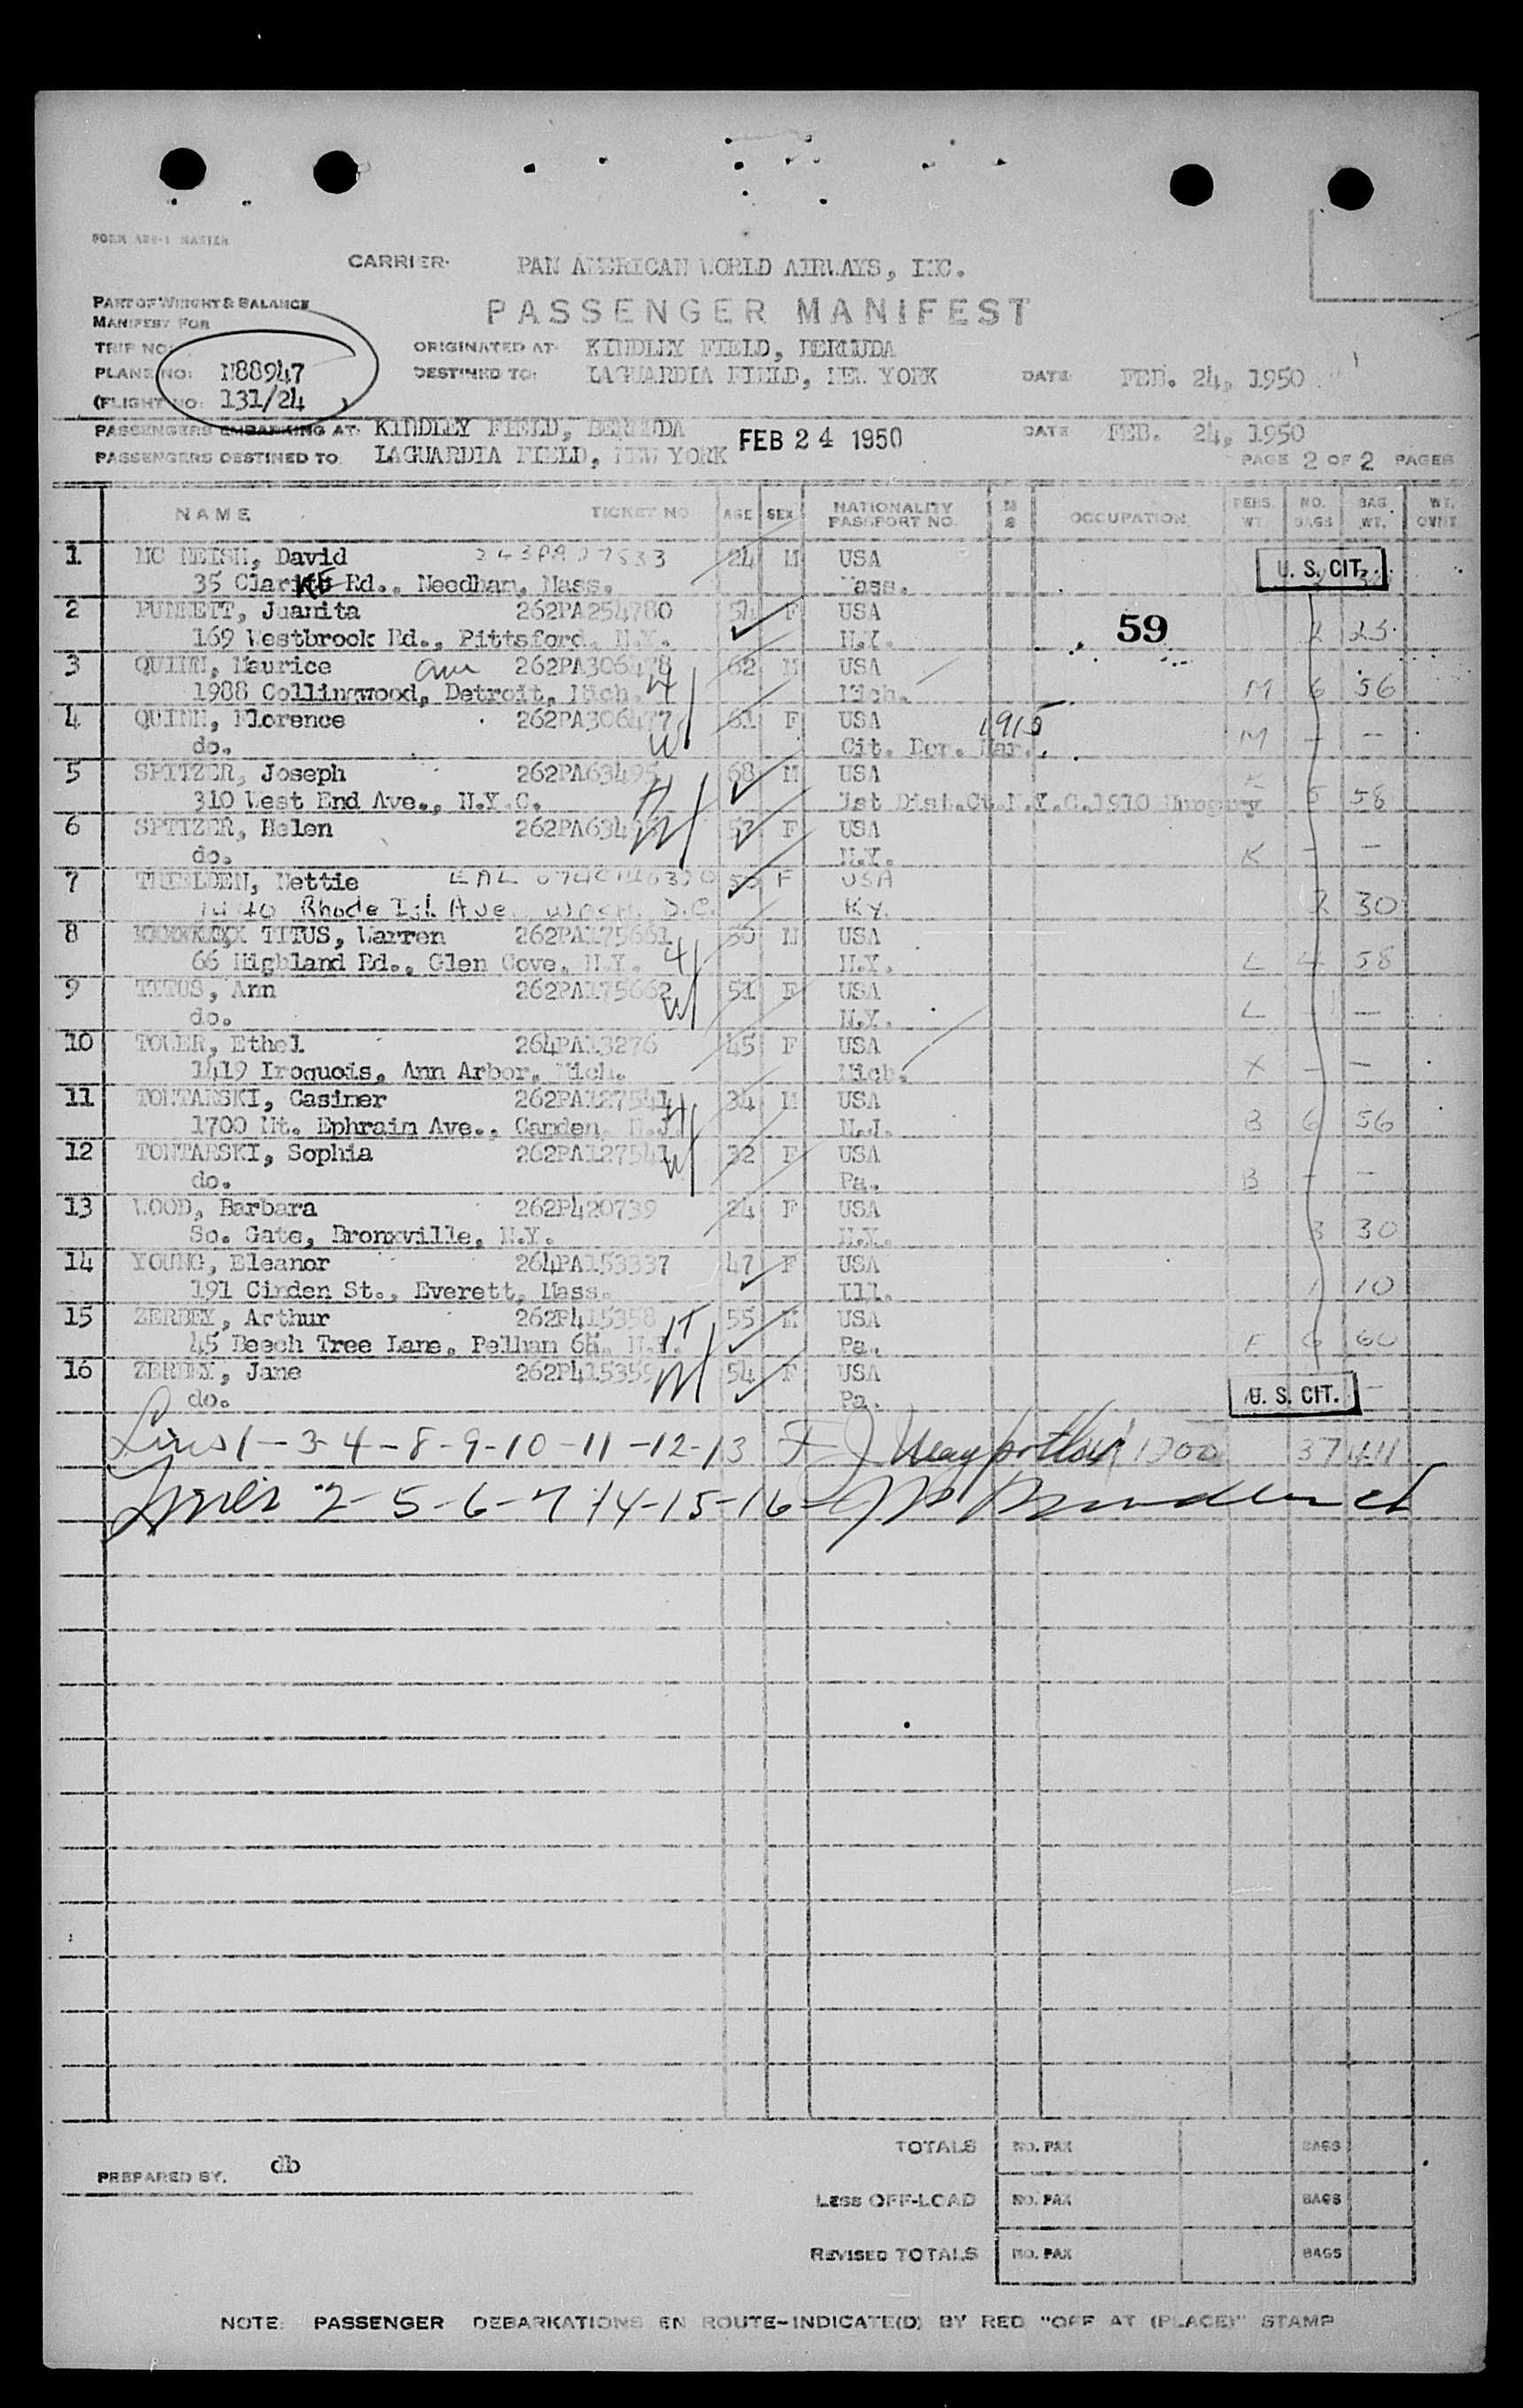 FORM MASTER
CARRIER: PAN AMERICAN WORLD AIRWAYS, INC.
PART OF WEIGHT & BALANCE
MANIFEST FOR
PASSENGER MANIFEST
TRIP NO: ORIGINATED AT: KINDLEY FIELD, BERMUDA
PLANE NO: N88947 DESTINED TO: LAGUARDIA FIELD, NEW YORK DATE: FEB. 24, 1950
(FLIGHT NO: 131/24 )
PASSENGERS EMBARKING AT: KINDLEY FIELD, BERMUDA FEB 24 1950 DATE FEB. 24, 1950
PASSENGERS DESTINED TO: LAGUARDIA FIELD, NEW YORK PAGE 2 OF 2 PAGES
NAME TICKET NO AGE SEX NATIONALITY PASSPORT NO. M S OCCUPATION PERS. WT. NO. BAGS BAG WT. WT. OVNT.
1 MC NEISH, David 24 M USA U. S. CIT.
35 Clarke Rd., Needham, Mass. Mass.
2 PUNNETT, Juanita 262PA254780 54 F USA 59
169 Westbrook Rd., Pittsford, N.Y. N.Y. 2 25
3 QUINN, Maurice 262PA306478 62 M USA
1988 Collingwood, Detroit, Mich. H Mich. M 6 56
4 QUINN, Florence 262PA306477 61 F USA 1915
do. W Cit. Der. Mar. M - -
5 SPITZER, Joseph 262PA63495 68 M USA
310 West End Ave., N.Y.C. H 1st Dist.Ct.N.Y.C.1910 Hungary K 5 58
6 SPITZER, Helen 262PA634 W 57 F USA
do. N.Y. K - -
7 Nettie EAL F USA
1440 Rhode Isl Ave., Wash. D.C. Ky. 2 30
8 TITUS, Warren 262PA175661 50 M USA
66 Highland Rd., Glen Cove, N.Y. H N.Y. L 4 58
9 TITUS, Ann 262PA175662 51 F USA
do. W N.Y. L - -
10 TOWER, Ethel 264PA13276 45 F USA
1419 Iroquois, Ann Arbor, Mich. Mich. X - -
11 TONTARSKI, Casimer 262PA127541 34 M USA
1700 Mt. Ephraim Ave., Camden, N.J. H N.J. B 6 56
12 TONTARSKI, Sophia 262PA127541 32 F USA
do. W Pa. B - -
13 WOOD, Barbara 262P420739 24 F USA
So. Gate, Bronxville, N.Y. N.Y. 3 30
14 YOUNG, Eleanor 264PA153337 47 F USA
191 Cinden St., Everett, Mass. Ill. 1 10
15 ZERBEY, Arthur 262P415358 H 55 M USA
45 Beech Tree Lane, Pelham 65, N.Y. Pa. F 6 60
16 ZERBEY, Jane 262P415359 W 54 F USA
do. Pa. U. S. CIT. -
Lines 1-3-4-8-9-10-11-12-13 37
Lines 2-5-6-7-14-15-16
TOTALS NO. PAX BAGS
PREPARED BY. db
LESS OFF-LOAD NO. PAX BAGS
REVISED TOTALS NO. PAX BAGS
NOTE: PASSENGER DEBARKATIONS EN ROUTE-INDICATE(D) BY RED "OFF AT (PLACE)" STAMP